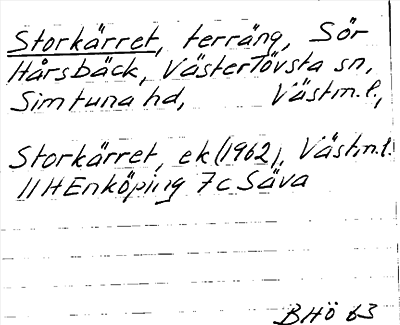 Storkärret, terräng, Sör
Hårsbäck, VästerLövsta sn,
Simtuna hd, Västm.l.,
Storkärret, ek (1962), Västm.l.
11H Enköping 7c Säva
BHö 63